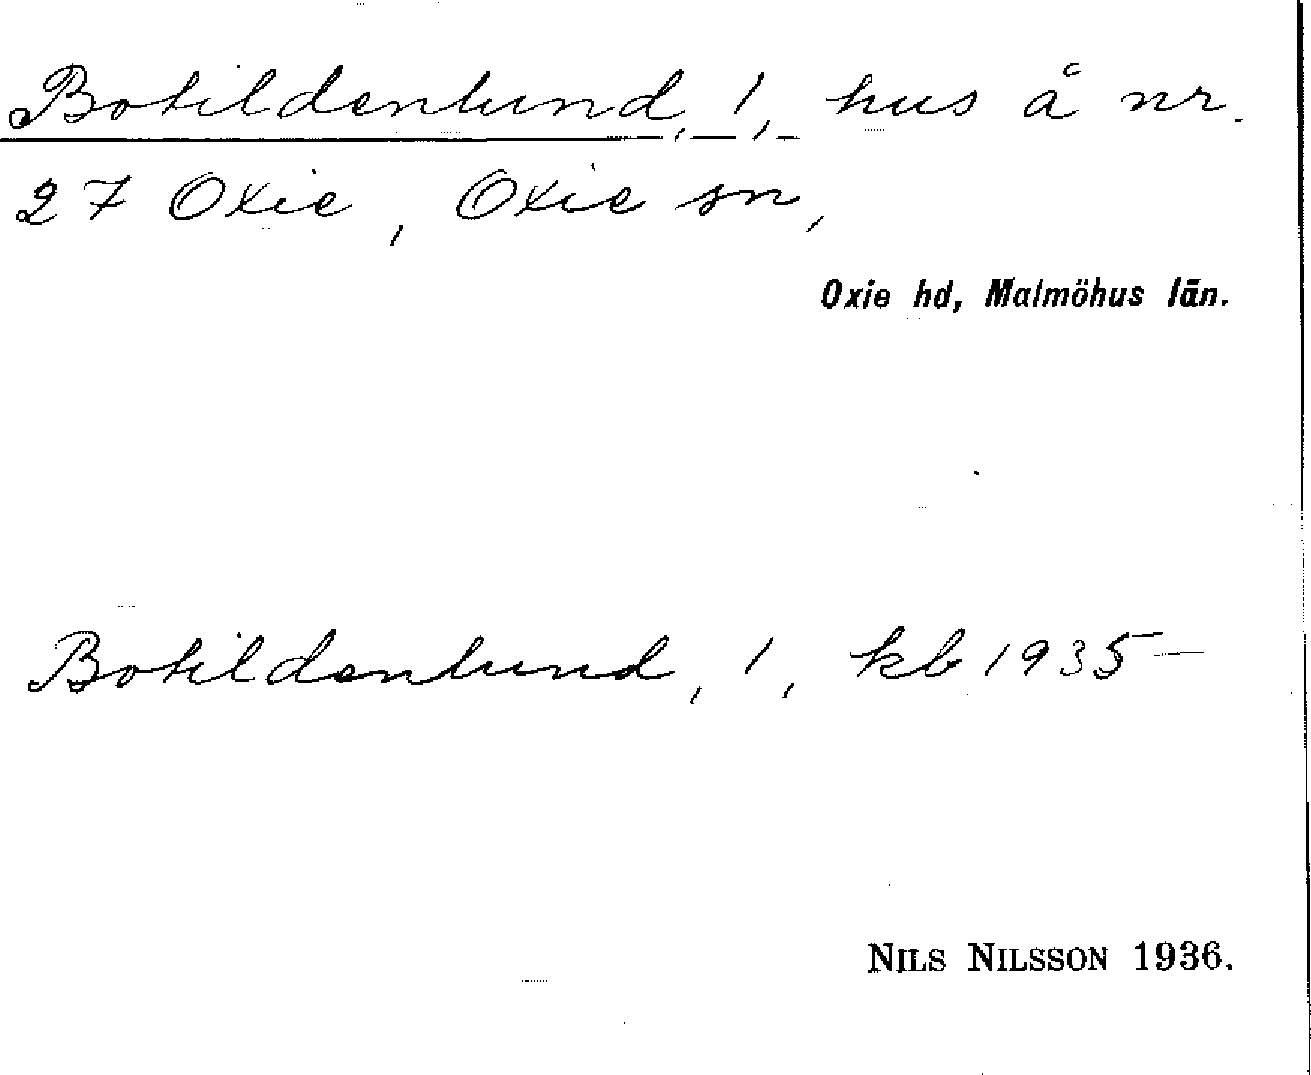 Botildenlund, 1, hus å nr.
27 Oxie, Oxie sn,
Oxie hd, Malmöhus län.
Botildenlund, 1, kb 1935-
NILS NILSSON 1936.